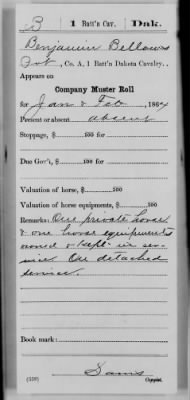 B | 1 Batt'n Cav. | Dak.
Benjamin Bellows
Pvt, Co. A, 1 Batt'n Dakota Cavalry.
Appears on
Company Muster Roll
for Jan & Feb, 1864
Present or absent absent
Stoppage, $ 100 for
Due Gov't, $ 100 for
Valuation of horse, $ 100
Valuation of horse equipments, $ 100
Remarks: One private horse
& one horse equipments
owned & kept in ser-
vice. On detached
service.
Book mark:
(358) Copyist.